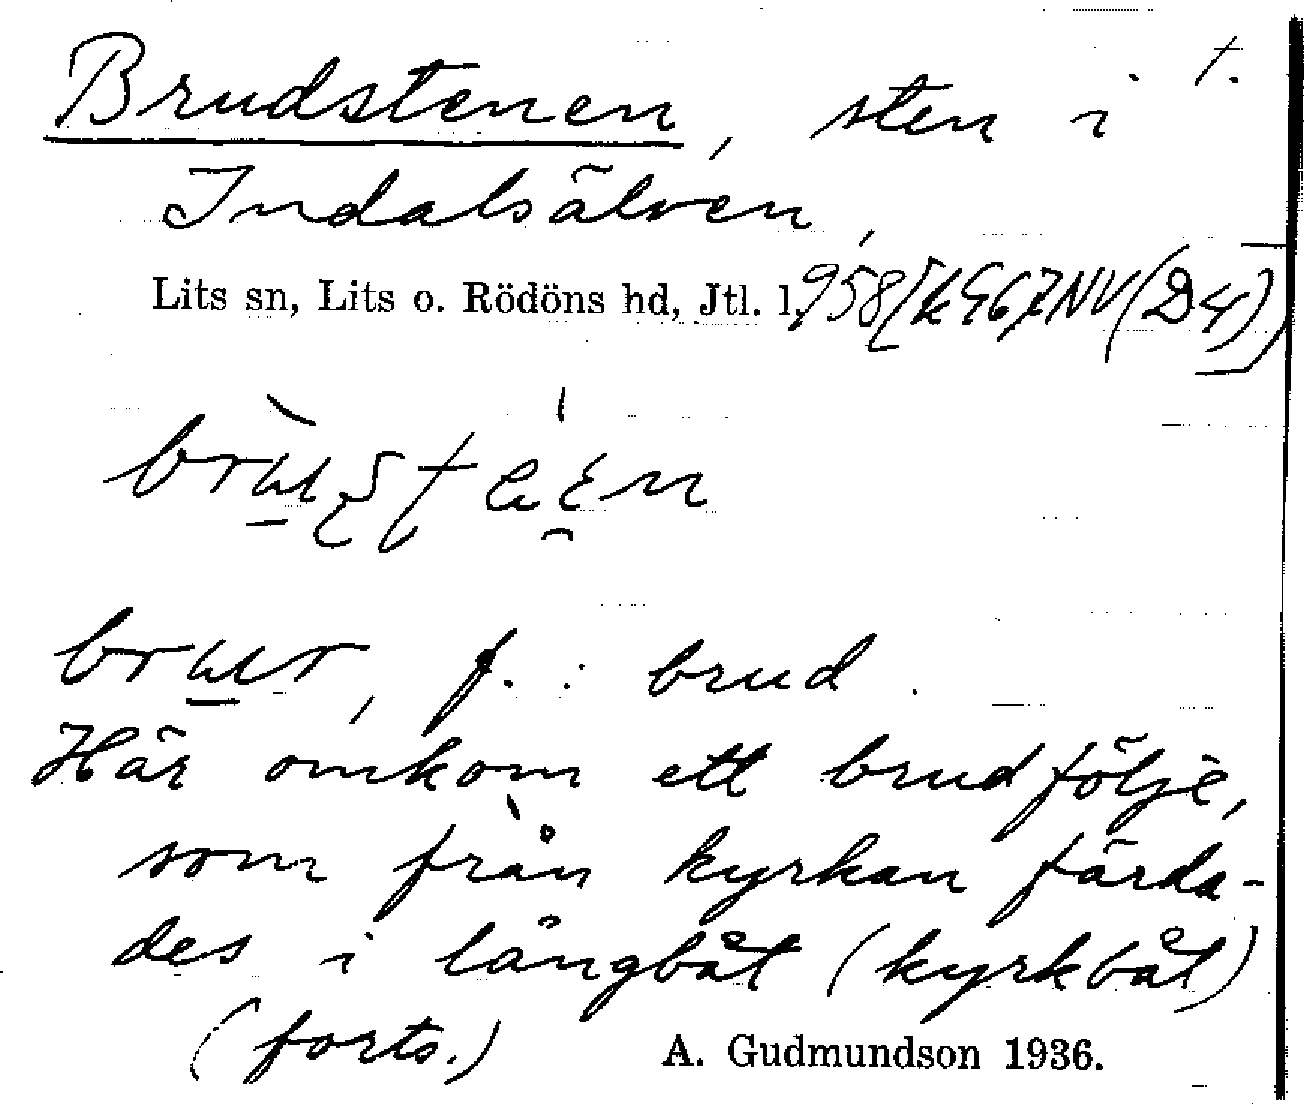 Brudstenen, sten i t.
Indalsälven,
Lits sn, Lits o. Rödöns hd, Jtl. l.
brud, f. : brud.
Här omkom ett brudfölje,
som från kyrkan färda-
des i långbåt (kyrkbåt)
(forts.) A. Gudmundson 1936.